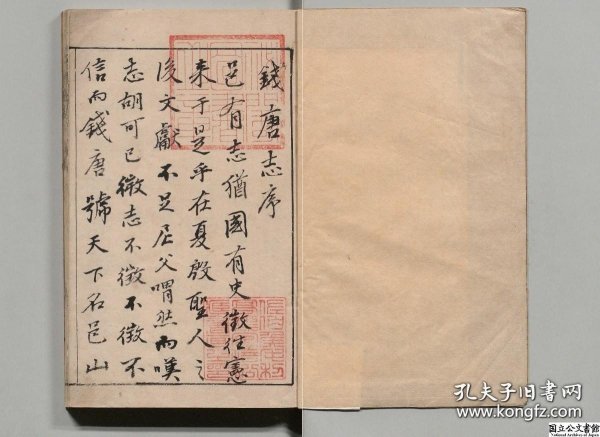 錢唐志序
邑有志猶國有史徵往憲
來于是乎在夏殷聖人之
後文獻不足尼父喟然而嘆
志胡可已徵志不徵不徵不
信而錢唐號天下名邑山
孔夫子旧书网
www.kongfz.com
国立公文書館
National Archives of Japan